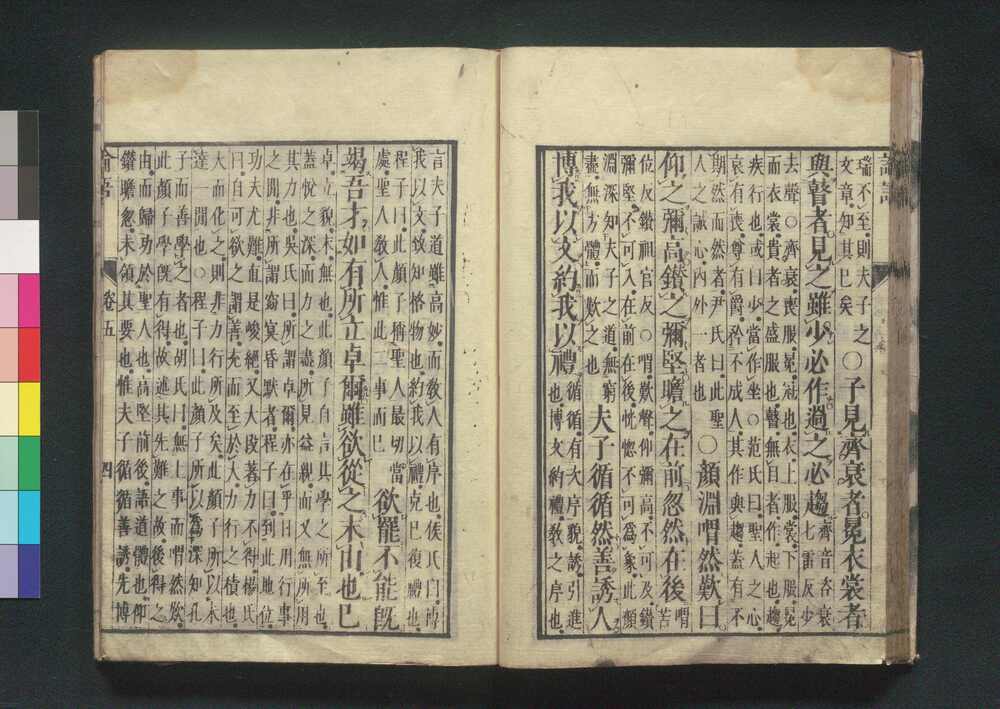 論語
瑞不至則夫子之
文章知其已矣
○子見齊衰者冕衣裳者
與瞽者見之雖少必作過之必趨
齊音咨衰
七雷反少
去聲○齊衰喪服冕冠也衣上服裳下服冕
而衣裳貴者之盛服也瞽無目者作起也趨
疾行也或曰少當作坐○范氏曰聖人之心
哀有喪尊有爵矜不成人其作與趨蓋有不
期然而然者尹氏曰此聖
人之誠心內外一者也
○顏淵喟然歎曰
仰之彌高鑽之彌堅瞻之在前忽然在後
喟
苦
位反鑽祖官反○喟歎聲仰彌高不可及鑽
彌堅不可入在前在後恍惚不可為象此顏
淵深知夫子之道無窮
盡無方體而歎之也
夫子循循然善誘人
博我以文約我以禮
循循有次序貌誘引進
也博文約禮教之序也
言夫子道雖高妙而教人有序也侯氏曰博
我以文致知格物也約我以禮克己復禮也
程子曰此顏子稱聖人最切當
處聖人教人惟此二事而已
欲罷不能既
竭吾才如有所立卓爾雖欲從之末由也已
卓立貌末無也此顏子自言其學之所至也
蓋悅之深而力之盡所見益親而又無所用
其力也吳氏曰所謂卓爾亦在乎日用行事
之間非所謂窈冥昏默者程子曰到此地位
功夫尤難直是峻絕又大段著力不得楊氏
曰自可欲之謂善充而至於大力行之積也
大而化之則非力行所及矣此顏子所以未
達一間也○程子曰此顏子所以為深知孔
子而善學之者也胡氏曰無上事而喟然歎
此顏子學既有得故述其先難之故後得之
由而歸功於聖人也高堅前後語道體也仰
鑽瞻忽未領其要也惟夫子循循善誘先博
論語
卷五
四